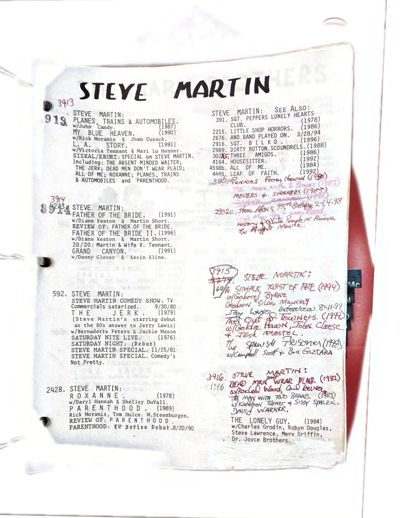 STEVE MARTIN
3913
913
STEVE MARTIN:
PLANES, TRAINS & AUTOMOBILES.
w/John Candy. (1987)
MY BLUE HEAVEN. (1990)
w/Rick Moramis & Joan Cusack.
L. A. STORY. (1991)
w/Victoria Tennant & Mari Lu Henner.
SISKAL/EBERT: SPECIAL on STEVE MARTIN.
Including: THE ABSENT MINDED WAITER;
THE JERK; DEAD MEN DON'T WEAR PLAID;
ALL OF ME; ROXANNE; PLANES, TRAINS
& AUTOMOBILES and PARENTHOOD.
3914
STEVE MARTIN:
FATHER OF THE BRIDE. (1991)
w/Diane Keaton & Martin Short.
REVIEW OF: FATHER OF THE BRIDE.
FATHER OF THE BRIDE II. (1996)
w/Diane Keaton & Martin Short.
20/20: Martin & Wife V. Tennant.
GRAND CANYON. (1991)
w/Danny Glover & Kevin Kline.
592. STEVE MARTIN:
STEVE MARTIN COMEDY SHOW: TV
Commercials satarized. 9/30/80
THE JERK. (1979)
(Steve Martin's starring debut
as the 80s answer to Jerry Lewis)
w/Bernadette Peters & Jackie Mason
SATURDAY NITE LIVE. (1976)
SATURDAY NIGHT. (Debut)
STEVE MARTIN SPECIAL. 11/25/81
STEVE MARTIN SPECIAL. Comedy's
Not Pretty.
2428. STEVE MARTIN:
ROXANNE. (1978)
w/Daryl Hannah & Shelley DuVall.
PARENTHOOD. (1989)
Rick Moramis, Tom Hulce, M.Steemburgen.
REVIEW OF: PARENTHOOD.
PARENTHOOD: TV Series Debut.8/20/90
STEVE MARTIN: SEE ALSO:
391. SGT. PEPPERS LONELY HEARTS
CLUB. (1978)
2215. LITTLE SHOP HORRORS. (1986)
2676. AND BAND PLAYED ON. 3/28/94
2916. SGT. BILKO. (1996)
2989. DIRTY ROTTON SCOUNDRELLS. (1988)
THREE AMIGOS. (1986)
4164. HOUSESITTER. (1992)
4598B. ALL OF ME. (1984)
4446. LEAF OF FAITH. (1992)
MOVERS & SHAKERS
3915
STEVE MARTIN:
A SIMPLE TWIST OF FATE (1994)
w/Gabriel Byrne
THE OUT OF TOWNERS. (1999)
w/Goldie Hawn, John Cleese
THE SPANISH PRISONER
w/Campbell Scott & Ben Gazzara
3916 STEVE MARTIN:
DEAD MEN WEAR PLAID. (1982)
w/Rachel Ward and Reiner
THE MAN WITH TWO BRAINS. (1983)
w/Kathleen Turner & Sissy Spacek.
DAVID WARNER.
THE LONELY GUY. (1984)
w/Charles Grodin, Robyn Douglas,
Steve Lawrence, Merv Griffin,
Dr. Joyce Brothers.